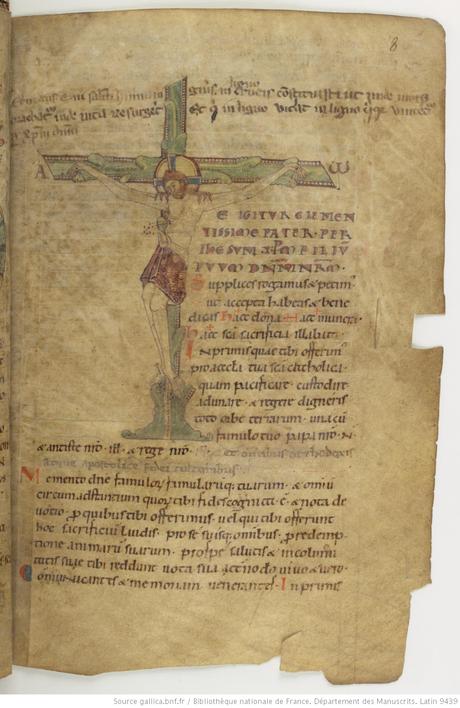 8
A
W
E IGITUR CLEMEN
TISSIME PATER. PER
IHESUM XPM FILIŪ
TUUM DNM NRM.
Supplices rogamus & petim
uti accepta habeas & bene
dicas haec dona. haec munera.
haec scā sacrificia illibata.
In primis quae tibi offerim
pro aeccla tua scā catholica.
quam pacificare. custodire
adunare. & regere digneris
toto orbe terrarum. una cū
famulo tuo papa nro. N
& antiste nro. ill. & rege nro. & omnibus orthodoxis
atque apostolice fidei cultoribus
Memento dne famulor famularūq; tuarum. & omniū
circum adstantium quor tibi fides cognita ē. & nota de
votio. p quibus tibi offerimus. vel qui tibi offerunt
hoc sacrificiū laudis. pro se suisq; omnibus. p redemp
tione animarū suarum. pro spe salutis & incolumi
tatis suae tibi reddunt vota sua aeterno dō vivo & vero.
Communicantes & memoriam venerantes. In primis
Source gallica.bnf.fr / Bibliothèque nationale de France. Département des Manuscrits. Latin 9439